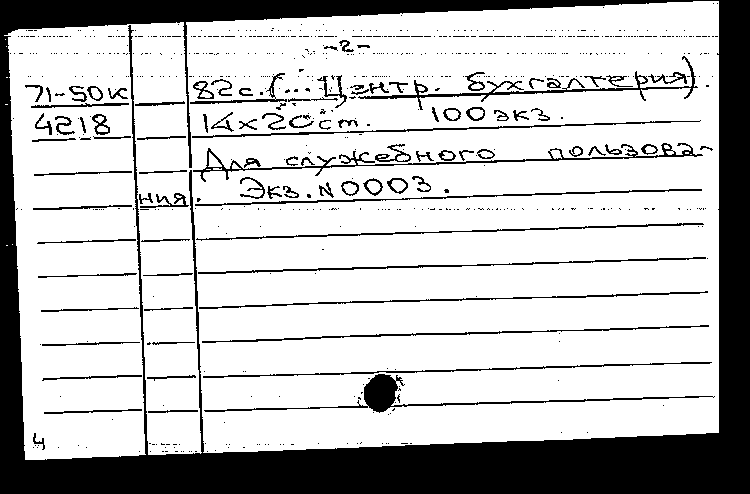 -2-
71-50к 82с. (... Центр. бухгалтерия).
4218 14x20cm. 100 экз.
Для служебного пользова-
ния. Экз. N 0003.
4